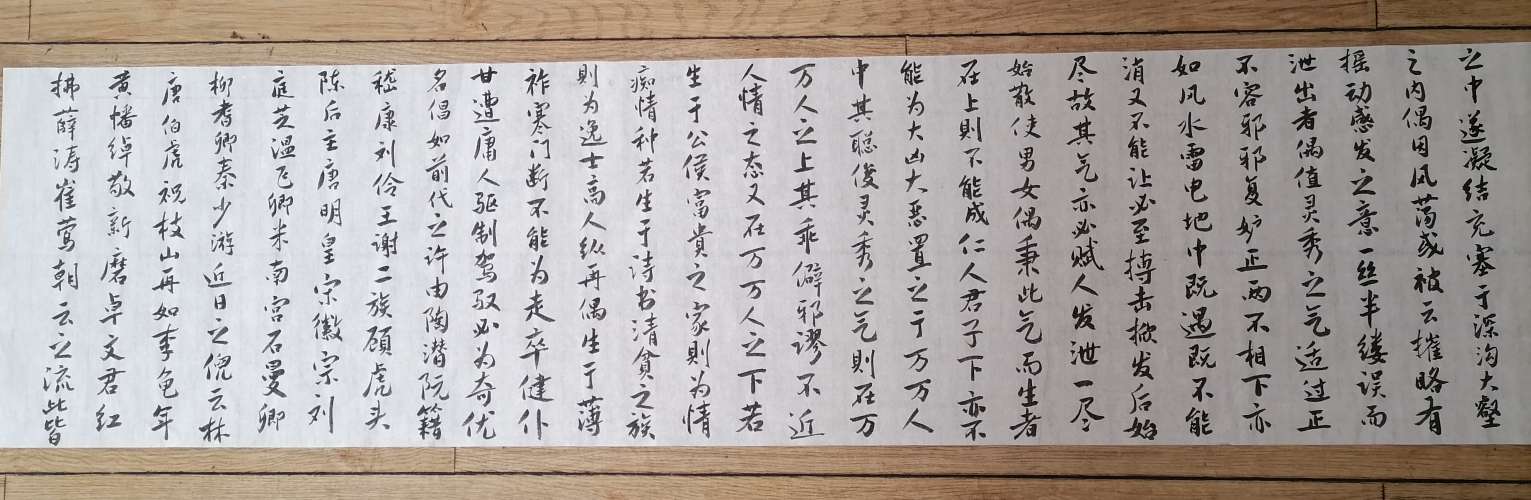 之中遂凝结充塞于深沟大壑
之内偶因风荡或被云摧略有
摇动感发之意一丝半缕误而
泄出者偶值灵秀之气适过正
不容邪邪复妒正两不相下亦
如风水雷电地中既遇既不能
消又不能让必至搏击掀发后始
尽故其气亦必赋人发泄一尽
始散使男女偶秉此气而生者
在上则不能成仁人君子下亦不
能为大凶大恶置之于万万人
中其聪俊灵秀之气则在万
万人之上其乖僻邪谬不近
人情之态又在万万人之下若
生于公侯富贵之家则为情
痴情种若生于诗书清贫之族
则为逸士高人纵再偶生于薄
祚寒门断不能为走卒健仆
甘遭庸人驱制驾驭必为奇优
名倡如前代之许由陶潜阮籍
嵇康刘伶王谢二族顾虎头
陈后主唐明皇宗徽宗刘
庭芝温飞卿米南宫石曼卿
柳耆卿秦少游近日之倪云林
唐伯虎祝枝山再如李龟年
黄幡绰敬新磨卓文君红
拂薛涛崔莺朝云之流此皆